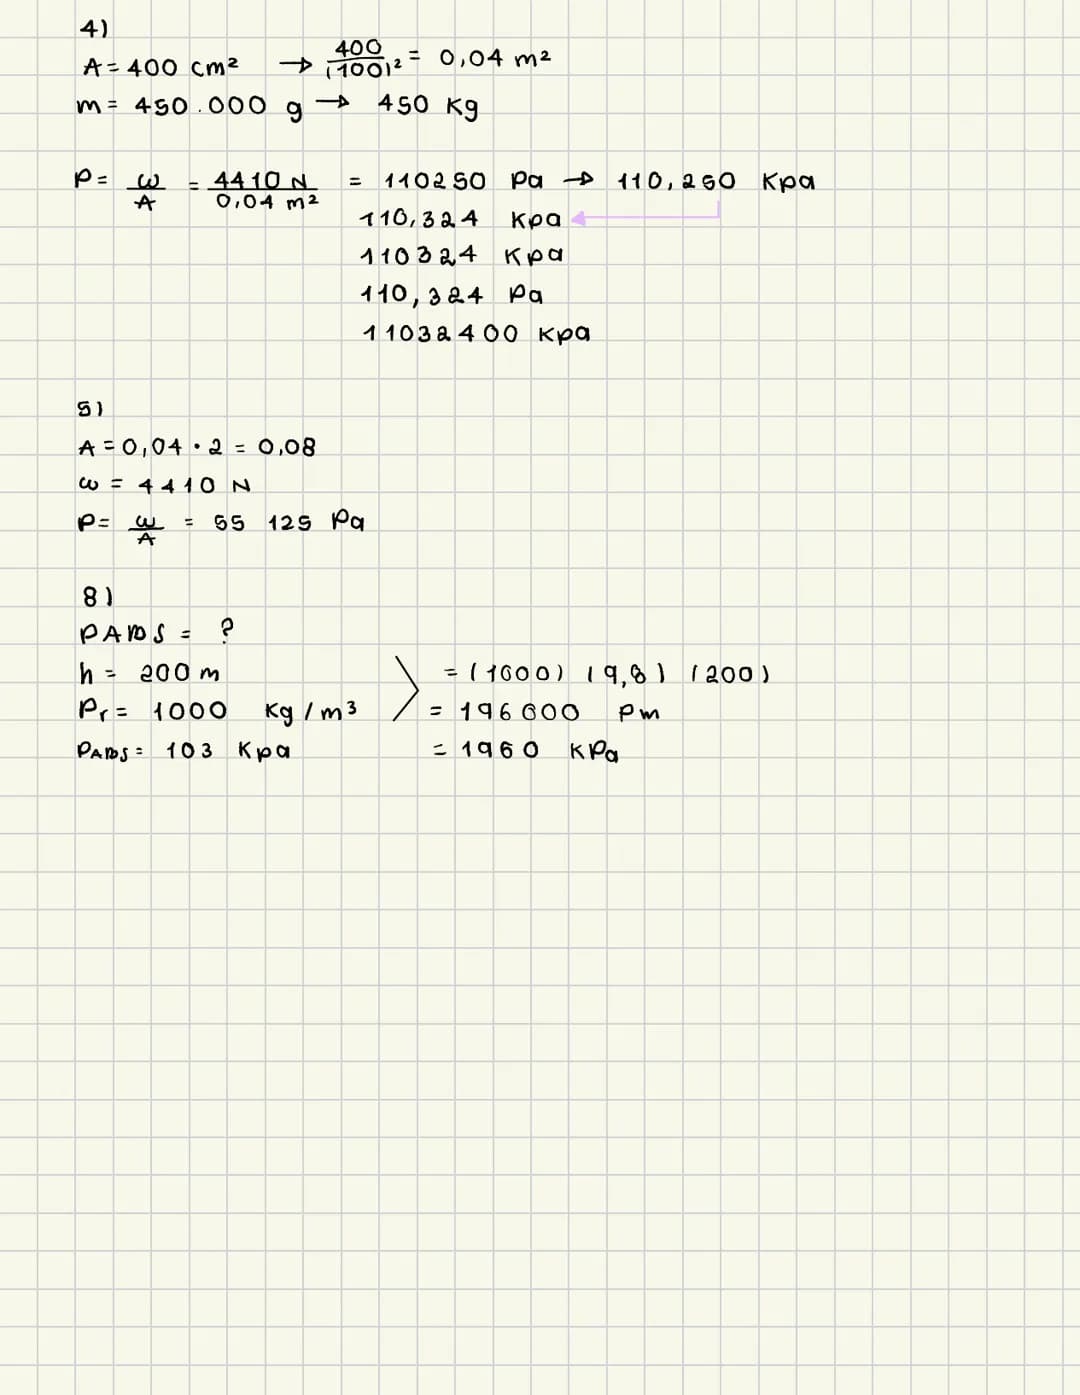 4)
A = 400 cm² → 400/(100)² = 0,04 m²
m = 450.000 g → 450 Kg
P = ω/A = 4410 N/0,04 m² = 110250 Pa → 110,250 Kpa
110,324 Kpa
110324 Kpa
110,324 Pa
11032400 Kpa
5)
A = 0,04 · 2 = 0,08
ω = 4410 N
P = ω/A = 55 125 Pa
8)
PABS = ?
h = 200 m = (1000) (9,8) (200)
Pr = 1000 Kg/m³ = 196 000 Pm
PABS = 103 Kpa = 1960 KPa